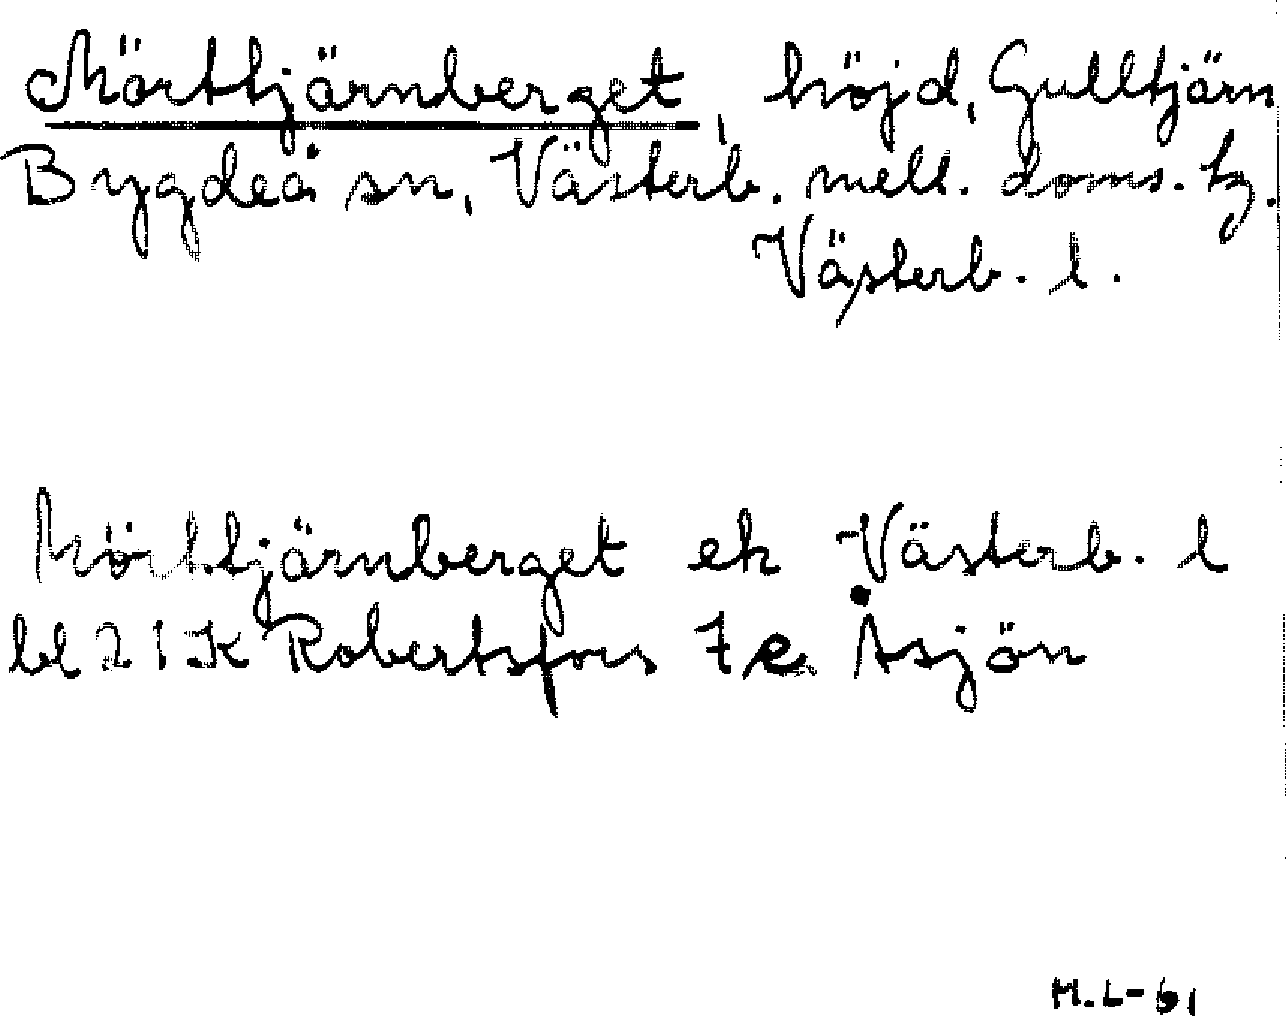 Mörttjärnberget, höjd, Gulltjärn
Bygdeå sn, Västerb. mell. doms. tg.
Västerb. l.
Mörttjärnberget ek Västerb. l
bl 21 K Robertsfors 7e Åsjön
M.L-61